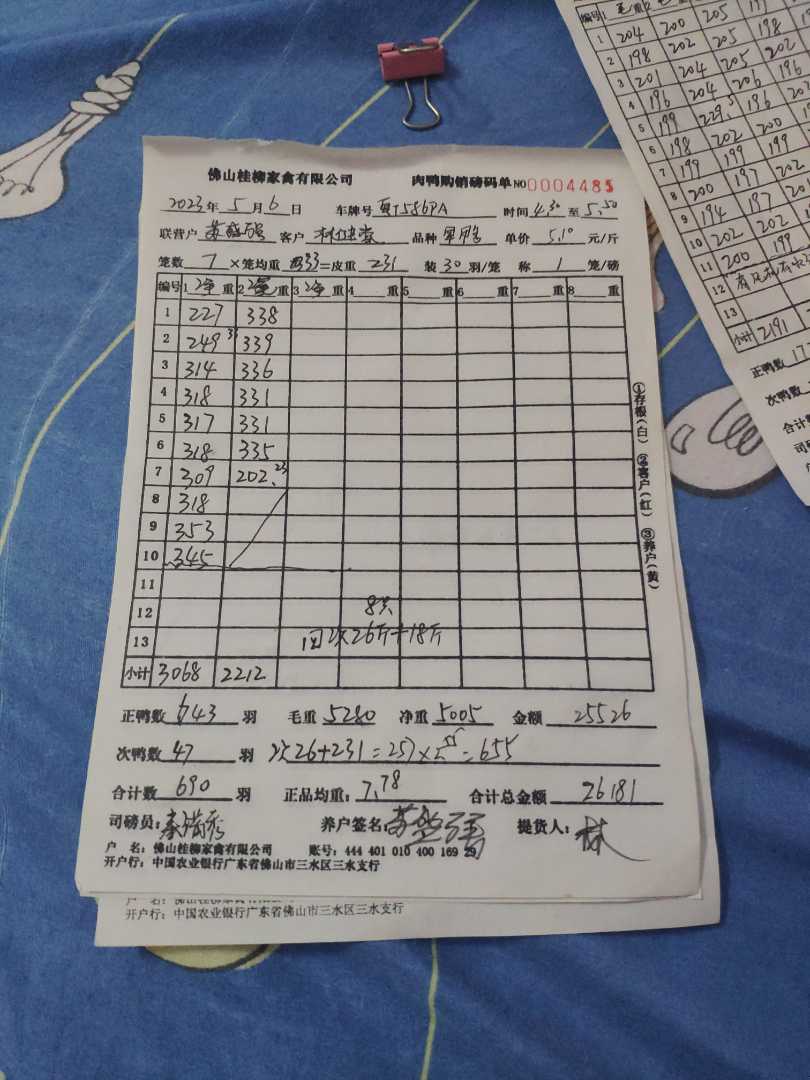 佛山桂柳家禽有限公司 肉鸭购销磅码单 NO 0004485
2023年5月6日 车牌号 时间4.30至5.50
联营户 客户 品种 单价 5.10 元/斤
笼数 7 ×笼均重 33=皮重 231 装30羽/笼 称 1 笼/磅
编号 1 重 2 重 3 重 4 重 5 重 6 重 7 重 8 重
1 227 338
2 249 33 339
3 314 336
4 318 331
5 317 331
6 318 335
7 309 202.23
8 318
9 353
10 345
11
12 8只
13 回次26斤+18斤
小计 3068 2212
正鸭数 643 羽 毛重 5280 净重 5005 金额 25526
次鸭数 47 羽 次26+231=257×2.55=655
合计数 690 羽 正品均重: 7.78 合计总金额 26181
司磅员: 养户签名: 提货人: 林
户 名: 佛山桂柳家禽有限公司 账号: 444 401 010 400 169 29
开户行: 中国农业银行广东省佛山市三水区三水支行
①存根(白) ②客户(红) ③养户(黄)
户 名: 佛山桂柳家禽有限公司
开户行: 中国农业银行广东省佛山市三水区三水支行
编号 1 重 2 重
1 204 200 205 197
2 198 202 205 198
3 201 204 205 202
4 196 204 206 196
5 199 229.5 196
6 198 202 200
7 199 199 199
8 200 197 202
9 194 197 201
10 202 202
11 200 199
12
13
小计 2191
正鸭数
次鸭数
合计
司磅